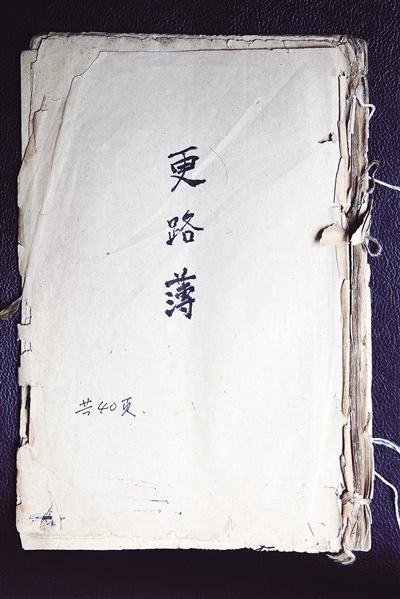 更路薄
共40页.